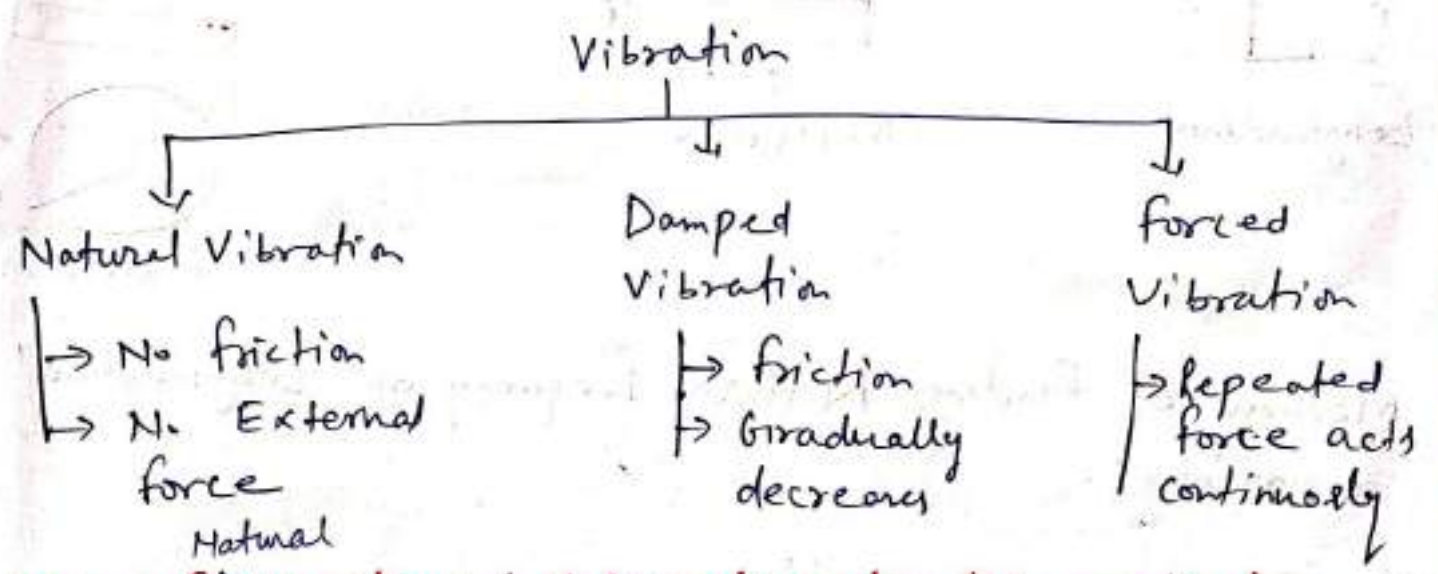 Vibration
Natural Vibration
→ No friction
→ No External
force
Natural
Damped
Vibration
→ friction
→ Gradually
decreases
forced
Vibration
→ Repeated
force acts
continuosly